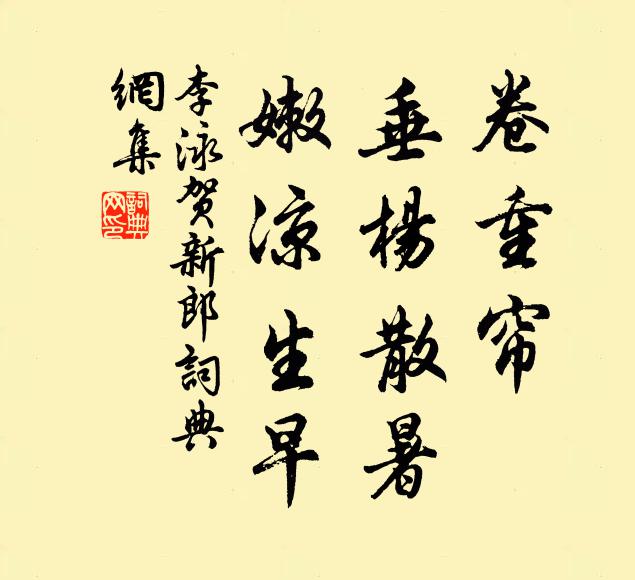 卷重帘
垂杨散暑
嫩凉生早
李泳贺新郎词典
網集
詞典网印